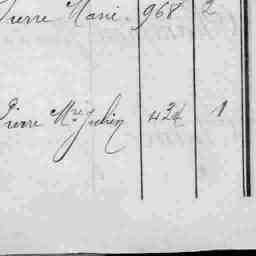 Pierre Marie 968 2
Pierre Mie Julien 434 1